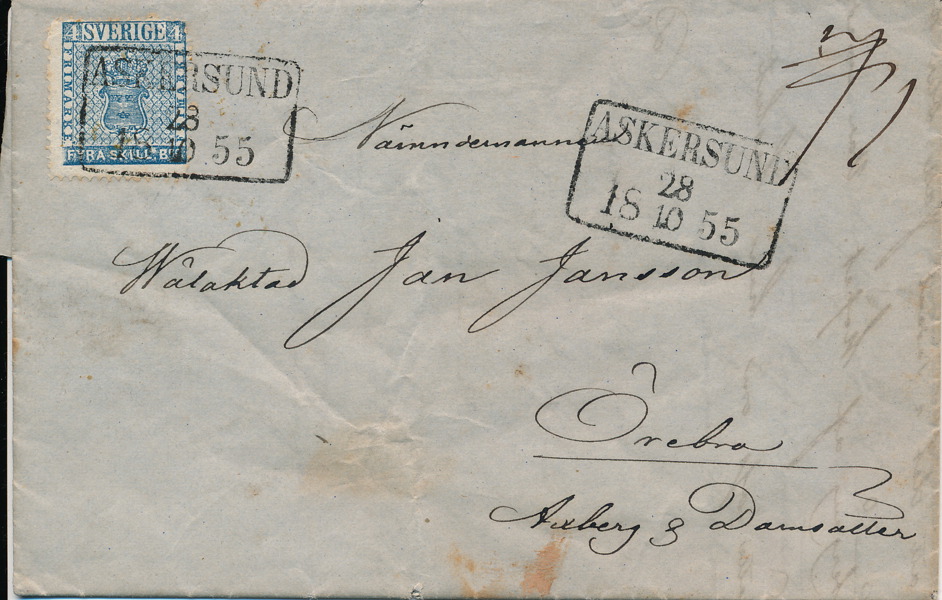 4 SVERIGE 4
FRIMÄRKE
FRIMÄRKE
FYRA SKILL. BCO
ASKERSUND
28
18 10 55
ASKERSUND
28
18 10 55
Nämndemannen
Wälaktad Jan Jansson
Örebro
Axberg & Damsätter